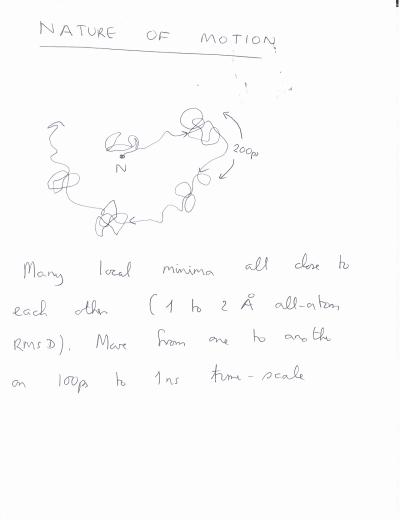 NATURE OF MOTION
200ps
N
Many local minima all close to
each other (1 to 2 Å all-atom
RMSD). Move from one to another
on 100ps to 1ns time-scale